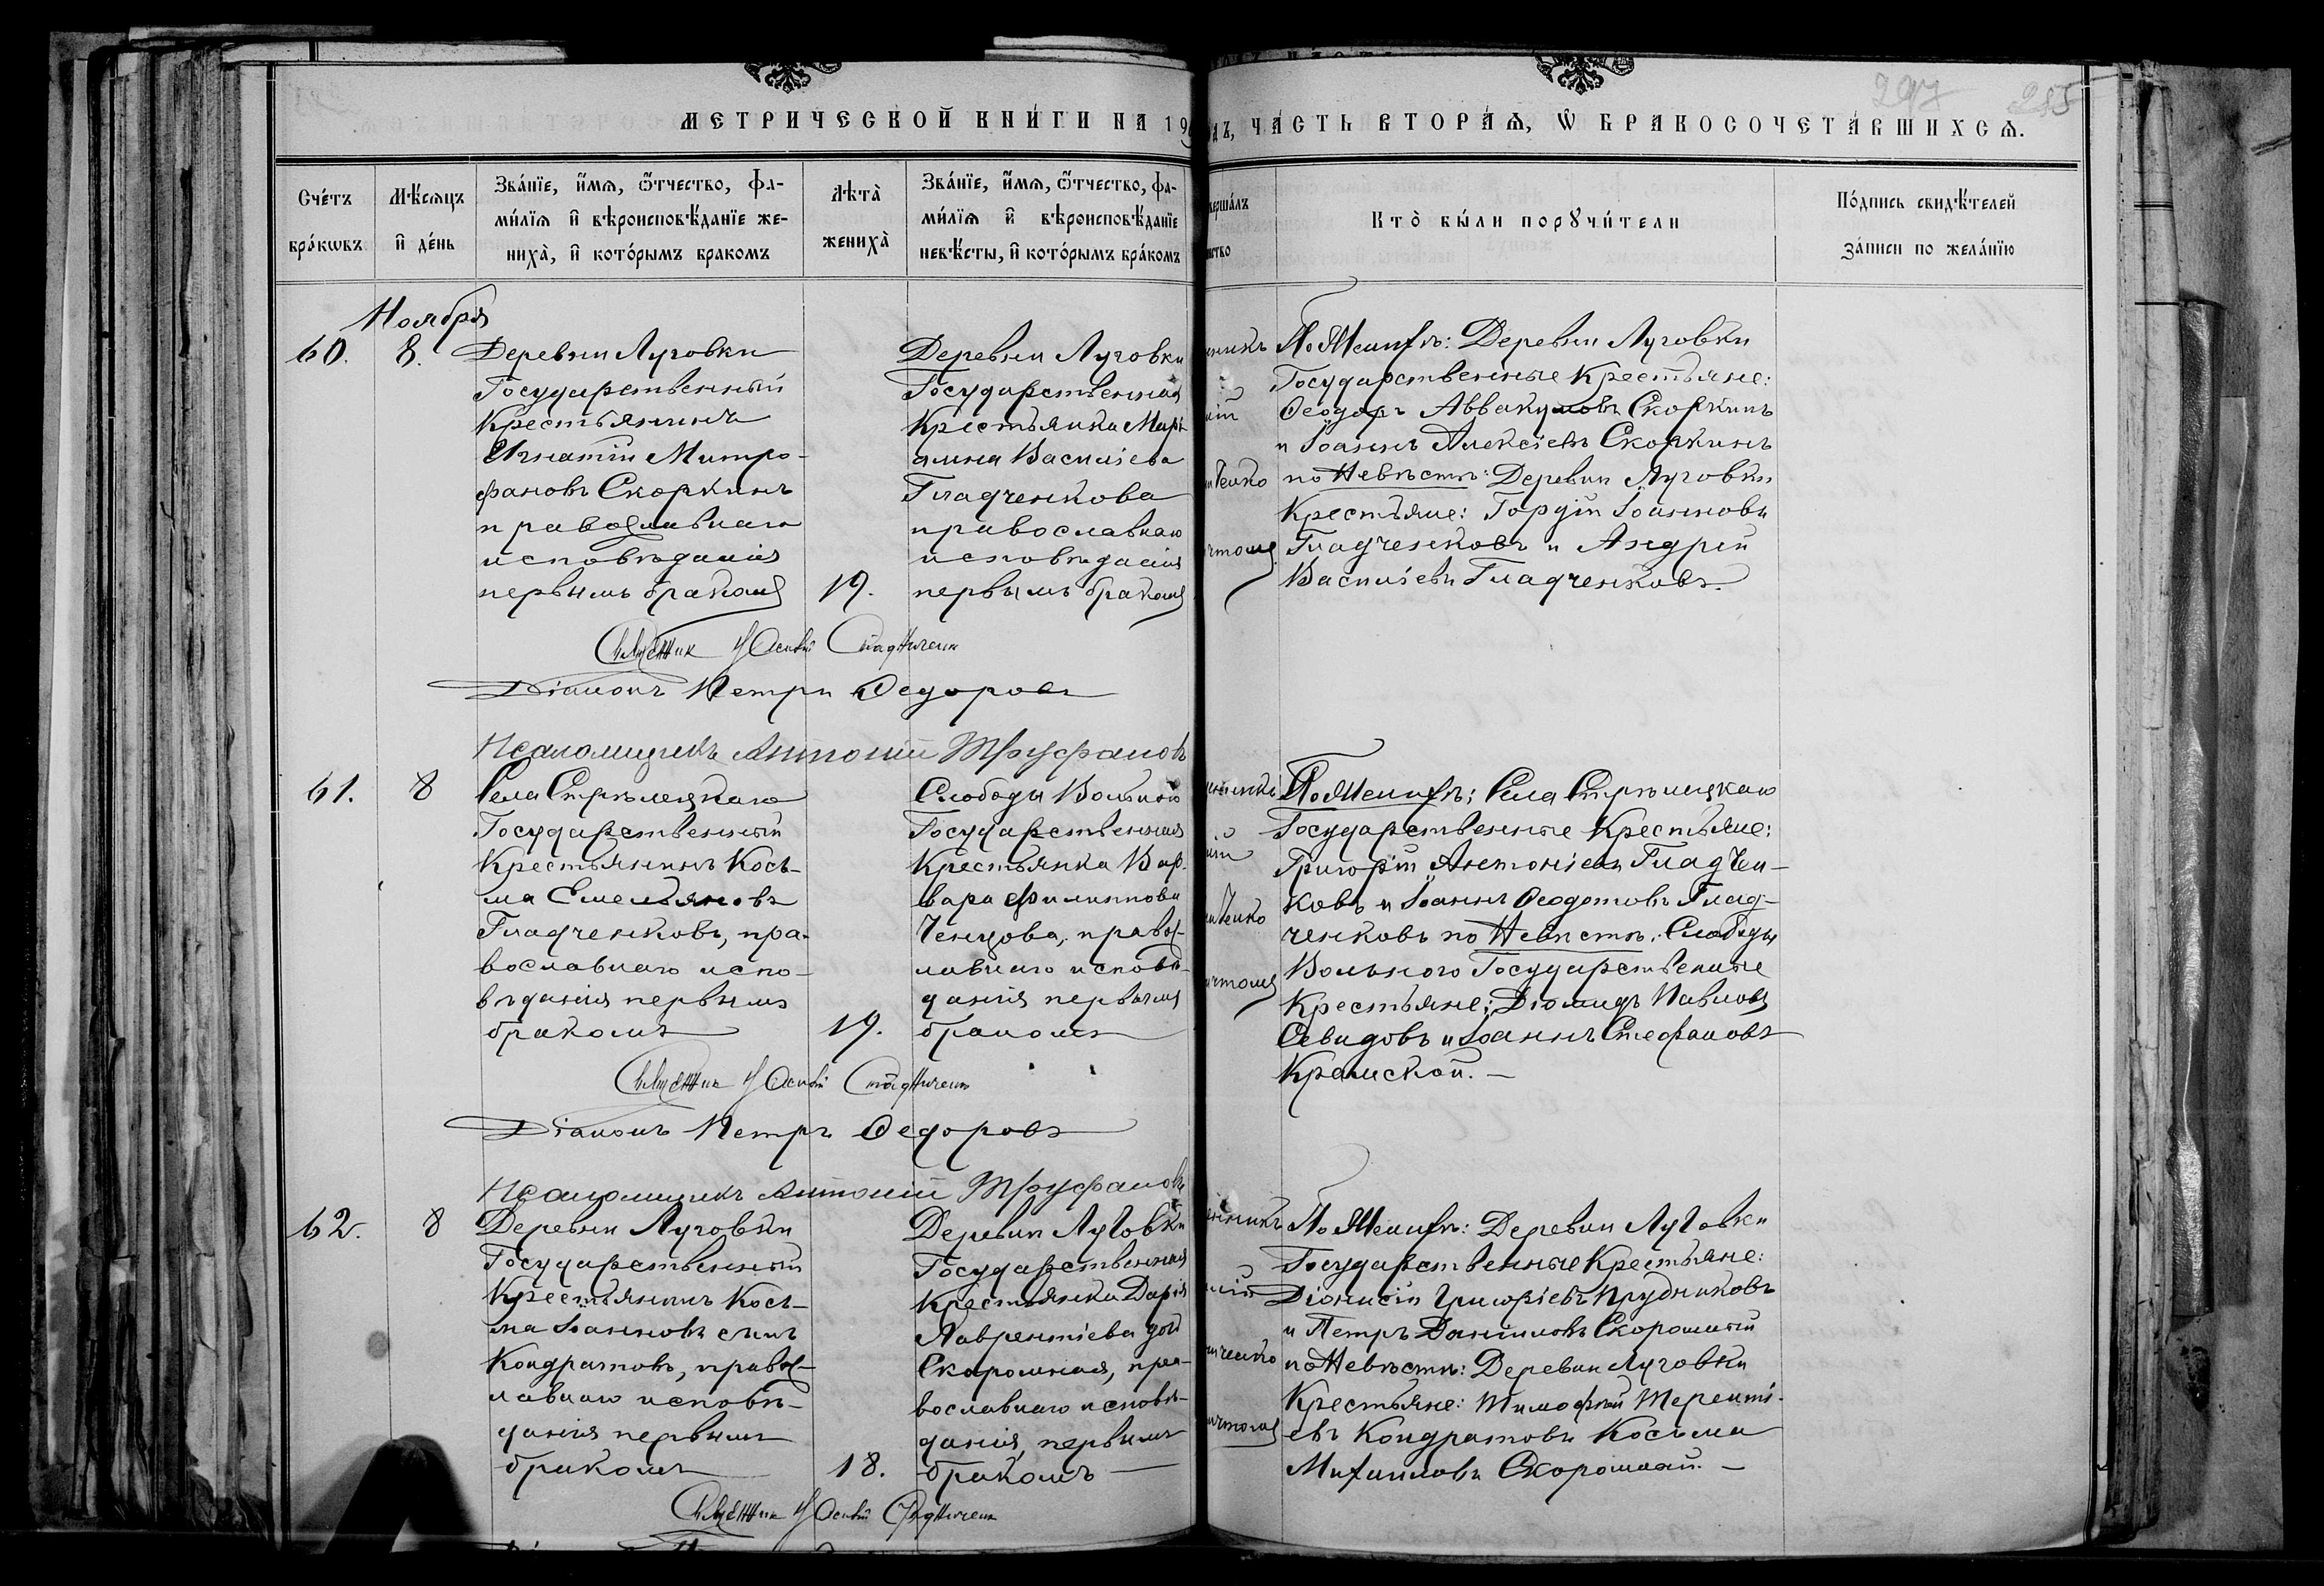 МЕТРИЧЕСКОЙ КНИ́ГИ НА 19
ДЪ, ЧА́СТЬ ВТОРА́Ѧ, Ѡ БРАКОСОЧЕТА́ВШИХСѦ.
297 285
Сче́тъ
бра́кѡвъ
Мѣ́сѧцъ
и де́нь
Зва́нїе, и́мѧ, ѻ́тчество, фа-
ми́лїѧ и вѣроисповѣ́данїе же-
ниха̀, и кото́рымъ бракомъ
Лѣта̀
жениха̀
Зва́нїе, и́мѧ, ѻ́тчество, фа-
ми́лїѧ и вѣроисповѣ́данїе
невѣ́сты, и кото́рымъ бра́комъ
верша́лъ
нство
Кто̀ бы́ли порꙋчи́тели
По́дпись свидѣ́телей
за́писи по жела́нїю
Ноября
60.
8.
Деревни Луговки
Государственный
Крестьянинъ
Игнатій Митро-
фановъ Скоркинъ
православнаго
исповѣданія
первымъ бракомъ
19.
Деревни Луговки
Государственная
Крестьянка Марі-
амна Василіева
Гладченкова
православнаго
исповѣданія
первымъ бракомъ
По Женихѣ: Деревни Луговки
Государственные Крестьяне:
Ѳеодоръ Аввакумовъ Скоркинъ
и Іоаннъ Алексіевъ Скоркинъ
по Невѣстѣ: Деревни Луговки
Крестьяне: Гордій Іоанновъ
Гладченковъ и Андрей
Василіевъ Гладченковъ.
Священник Іосифъ
Діаконъ Петръ Ѳедоровъ
Псаломщикъ Антоній Труфановъ
61.
8
Села Стрѣлецкаго
Государственный
Крестьянинъ Кось-
ма Емельяновъ
Гладченковъ, пра-
вославнаго испо-
вѣданія первымъ
бракомъ
19.
Слободы Вольной
Государственная
Крестьянка Вар-
вара Филиппова
Ченцова, правос-
лавнаго исповѣ-
данія первымъ
бракомъ
По Женихѣ: Села Стрѣлецкаго
Государственные Крестьяне:
Григорій Антоніевъ Гладчен-
ковъ и Іоаннъ Ѳеодотовъ Глад-
ченковъ по Невѣстѣ: Слободы
Вольного Государственные
Крестьяне: Діомидъ Павловъ
Севидовъ и Іоаннъ Стефановъ
Крамской.
Священник Іосифъ
Діаконъ Петръ Ѳедоровъ
Псаломщикъ Антоній Труфановъ
62.
8
Деревни Луговки
Государственный
Крестьянинъ Кось-
ма Іоанновъ сынъ
Кондратовъ, правос-
лавнаго исповѣ-
данія первымъ
бракомъ
18.
Деревни Луговки
Государственная
Крестьянка Дарія
Лаврентіева
Скоромная, пра-
вославнаго исповѣ-
данія, первымъ
бракомъ
По Женихѣ: Деревни Луговки
Государственные Крестьяне:
Діонисій Григоріевъ Прудниковъ
и Петръ Даніиловъ Скоромный
по Невѣстѣ: Деревни Луговки
Крестьяне: Тимофей Терентi-
евъ Кондратовъ Косьма
Михаиловъ Скоромный.
Священник Іосифъ